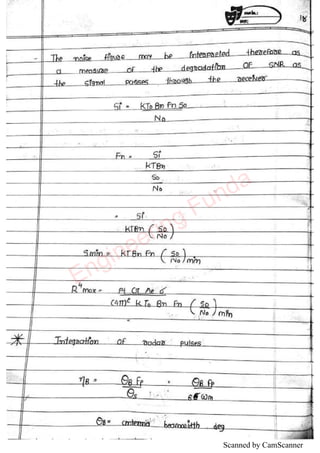 18
- The noise figure may be interpreted therefore as
a measure of the degradation OF SNR as
the signal passes through the receiver
Si = KT0 Bn Fn So
No
Fn = Si
KTBn
So
No
= Si
KTBn (So/No)
Smin = KTBn Fn (So/No)min
R4max = Pt Gt Ae σ
(4π)2 K T0 Bn Fn (So/No)min
* Integration of radar pulses
ηB = θB fp = θB fp
θs 6 ωm
θB = antenna beamwidth deg
Engineering Funda
Scanned by CamScanner